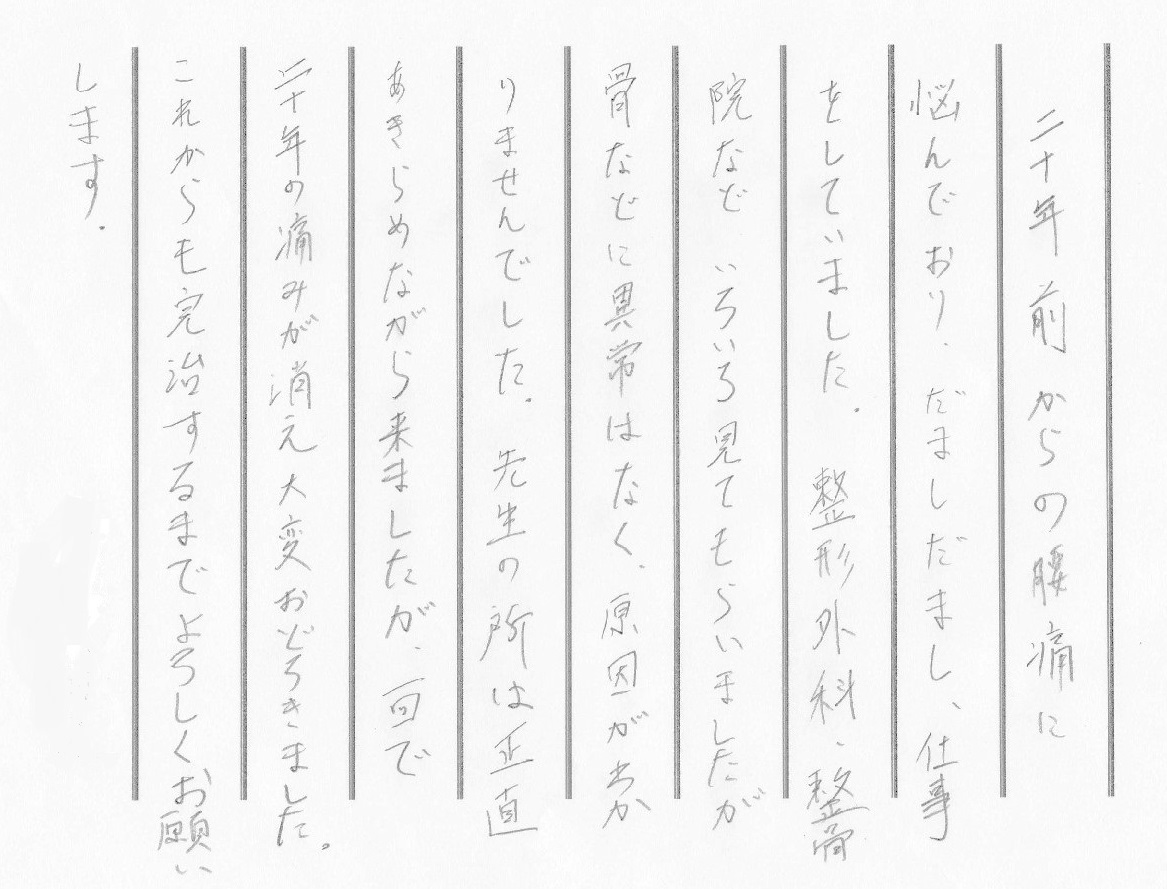 二十年前からの腰痛に
悩んでおり、だましだまし、仕事
をしていました。 整形外科、整骨
院など いろいろ見てもらいましたが
骨などに異常はなく、原因がわか
りませんでした。 先生の所は正直
あきらめながら来ましたが、一回で
二十年の痛みが消え大変おどろきました。
これからも完治するまでよろしくお願い
します。